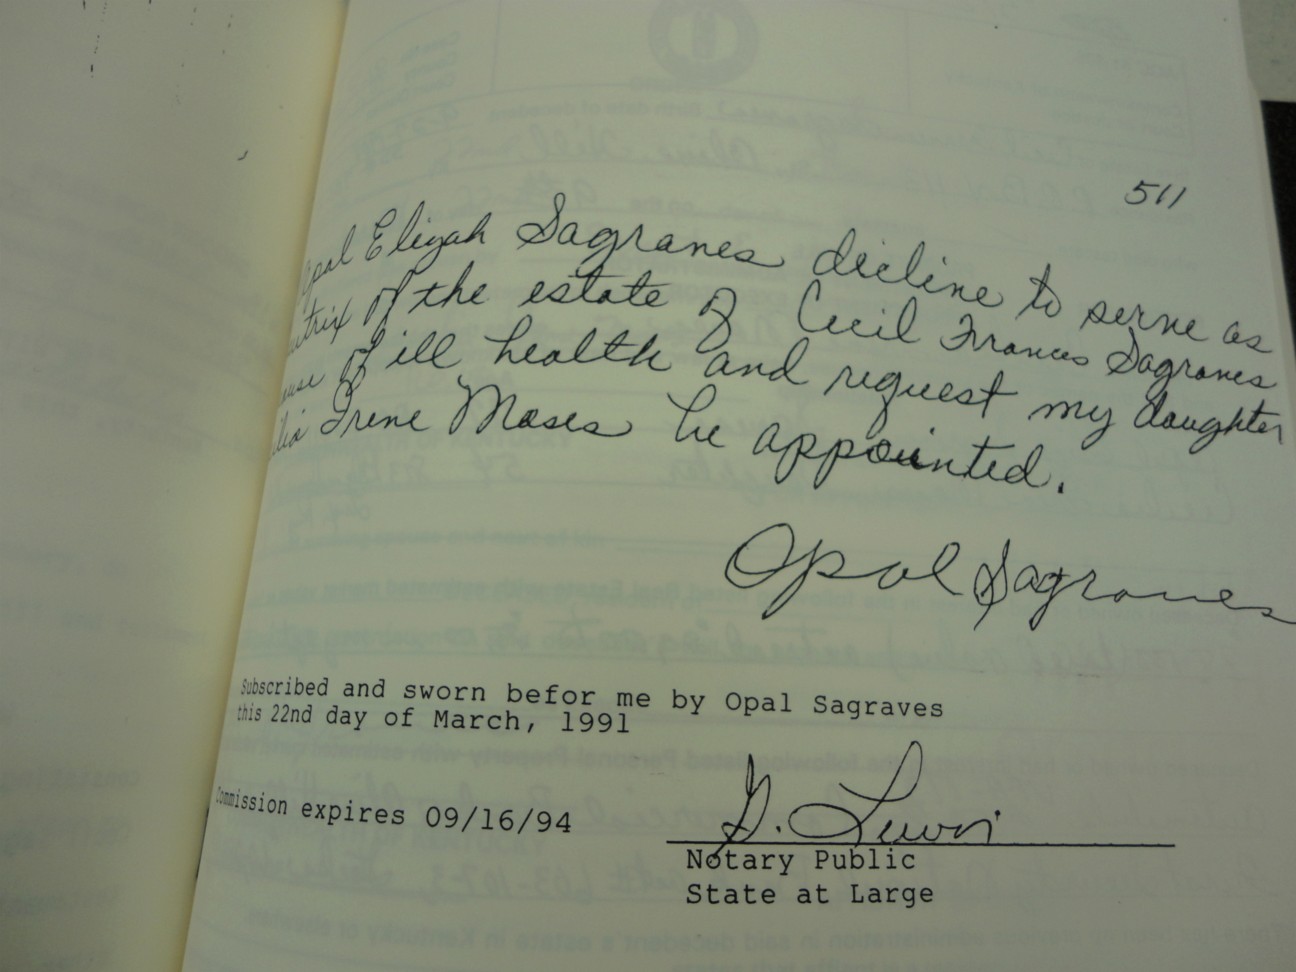 511
Opal Elizah Sagraves decline to serve as
trix of the estate of Cecil Frances Sagraves
ause of ill health and request my daughter
lia Irene Moses be appointed.
Opal Sagraves
Subscribed and sworn befor me by Opal Sagraves
this 22nd day of March, 1991
Commission expires 09/16/94
Notary Public
State at Large